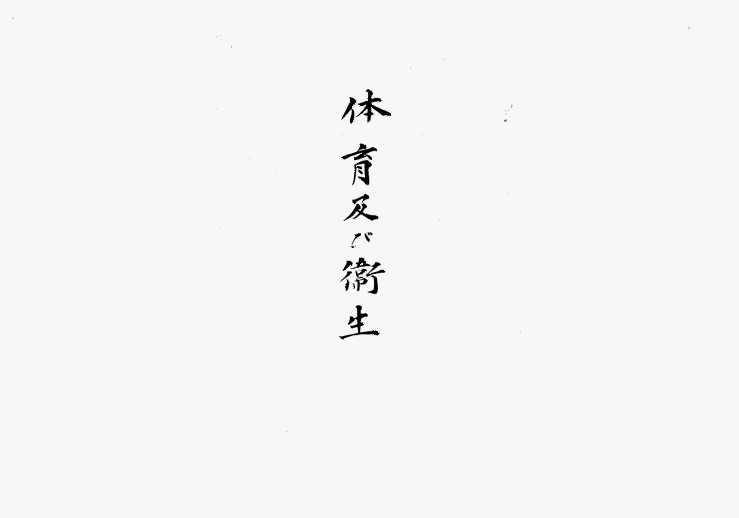 体育及び衛生